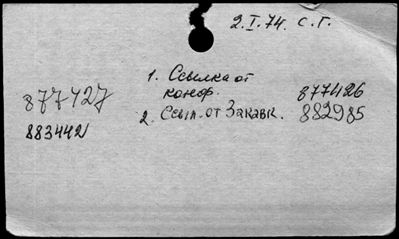 2.I.74. С.Г.
1. Ссылка от
877427 конф. 877426
883442 2. Ссыл. от Закавк. 882985